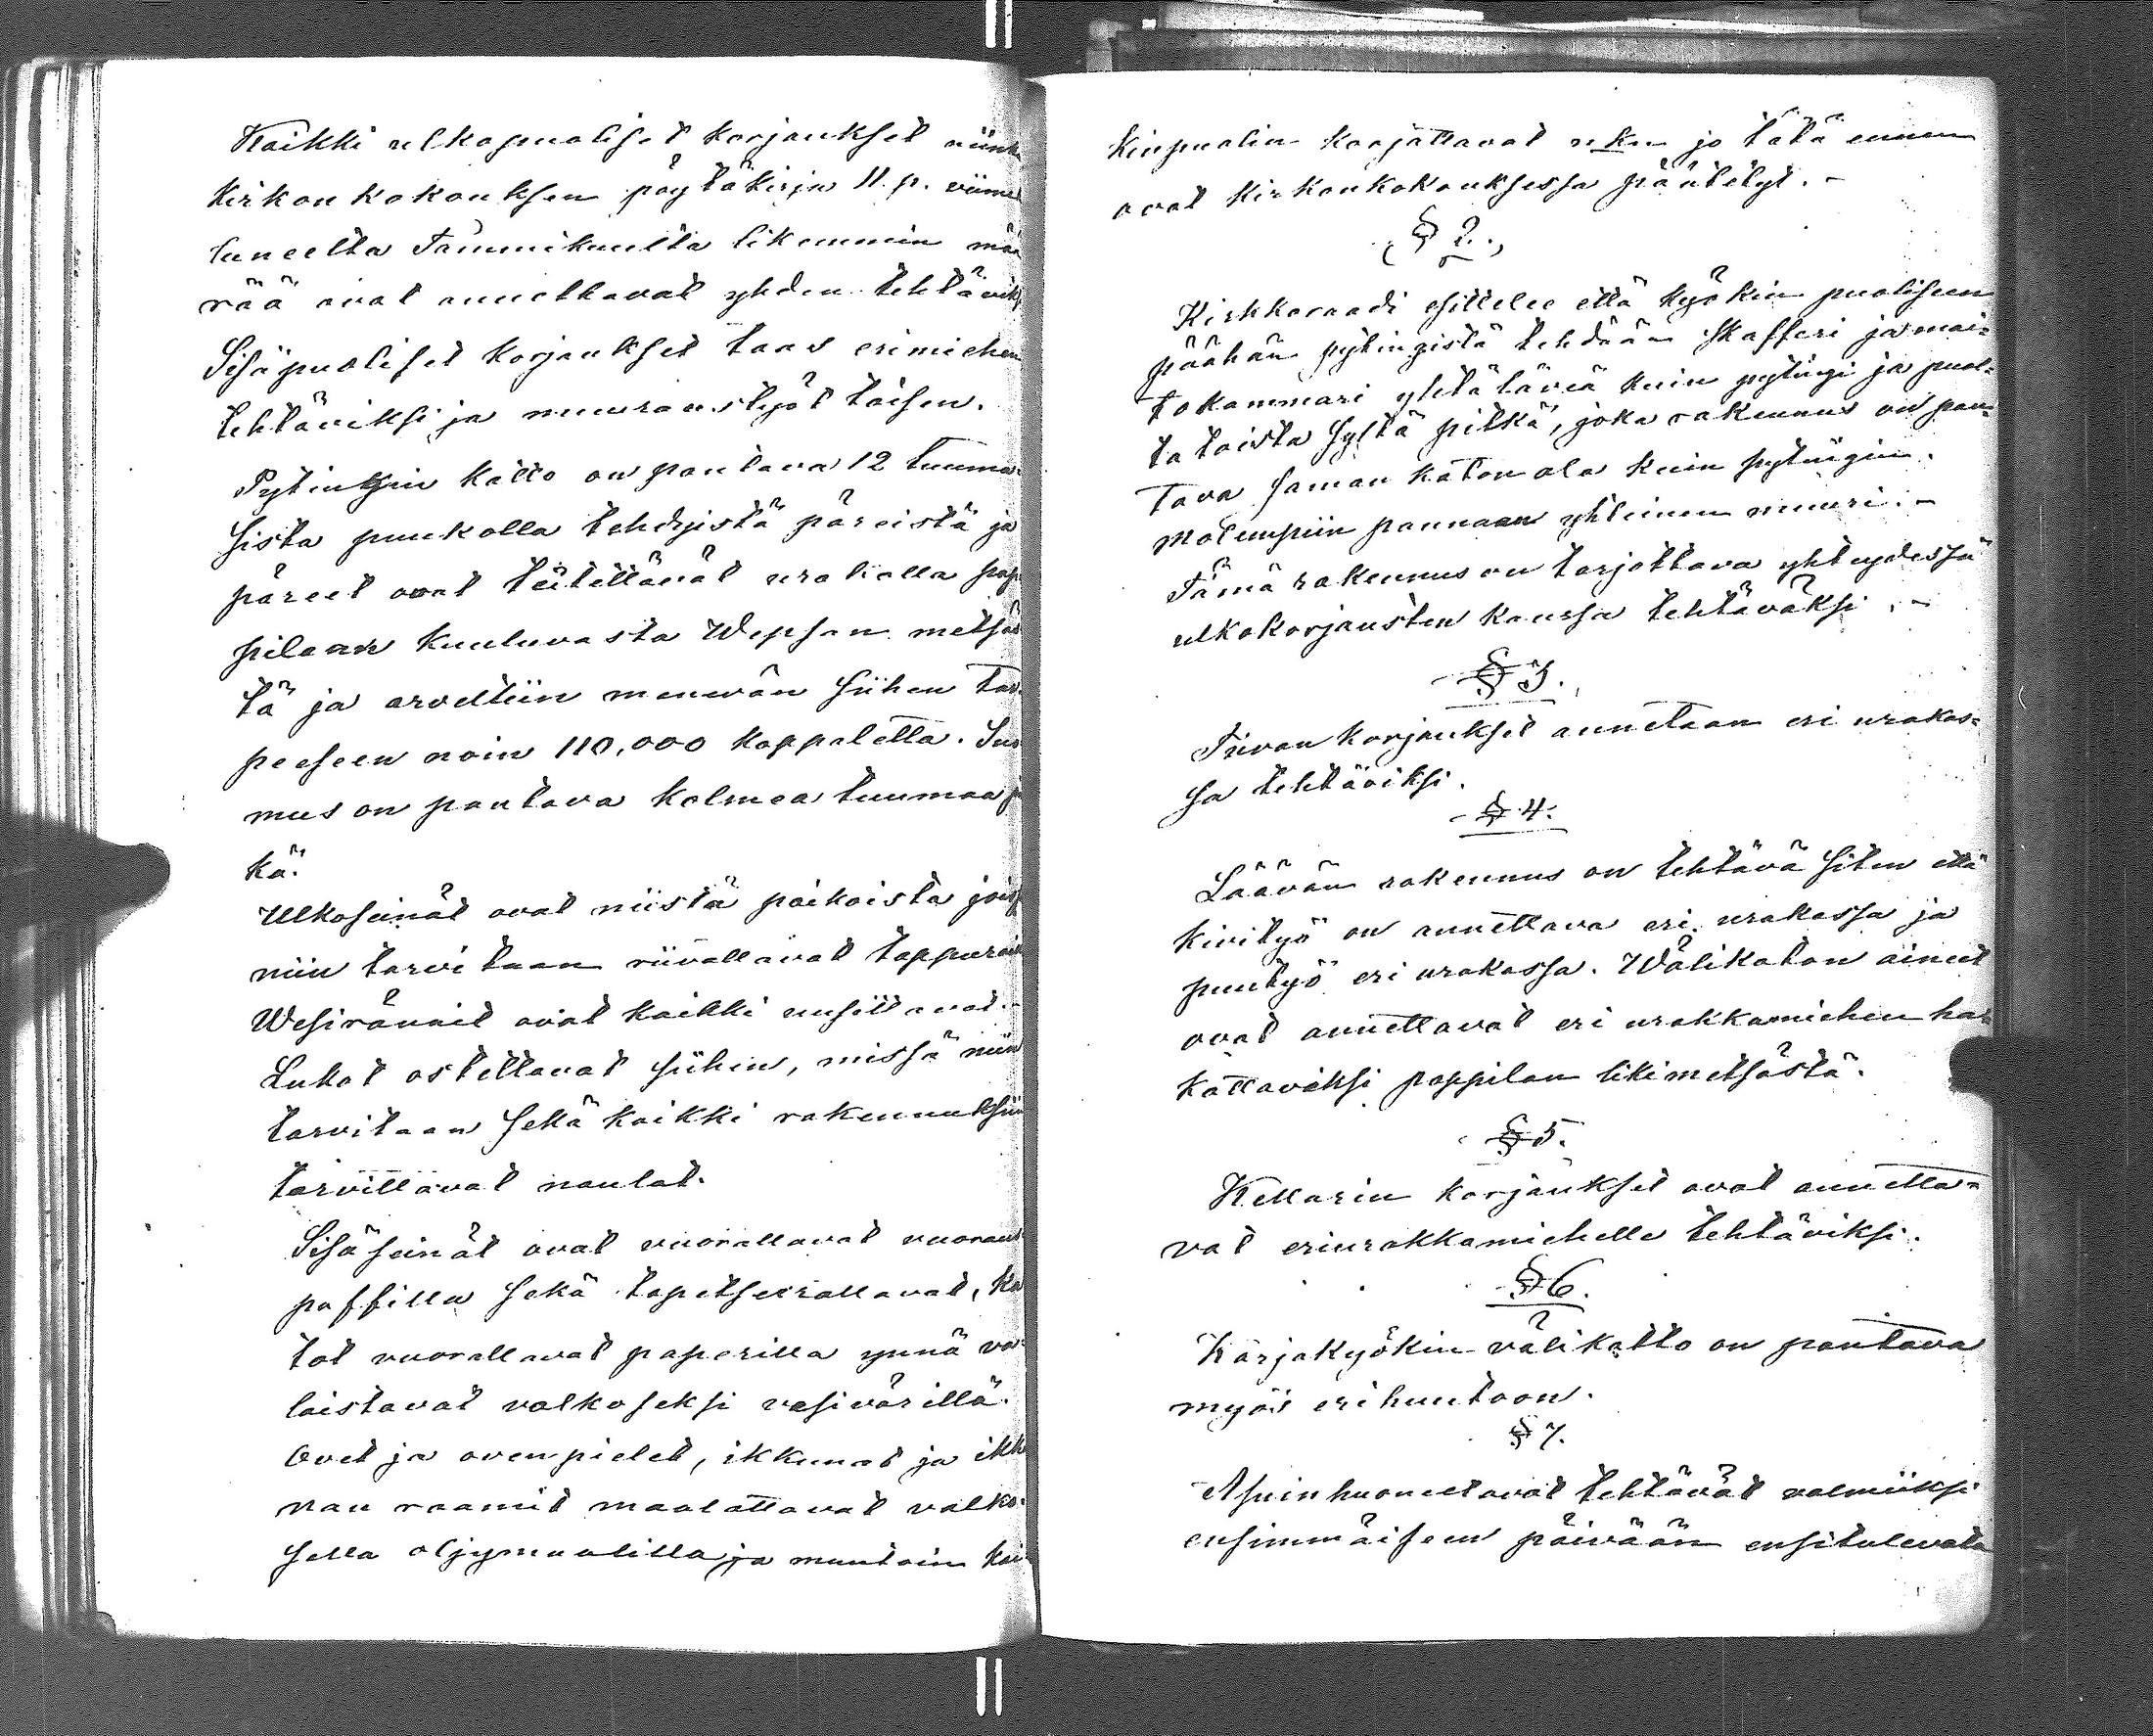 Kaikki ulkopuoliset korjaukset niinku
Kirkonkokouksen pöytäkirja 11. p. viime
luneelta Tammikuulta likemmin mää
rää ovat annettavat yhden tehtäviks
Sisäpuoliset korjaukset taas erimiehen
tehtäviksi ja muuraustyöt toisen.
Pytingin katto on pantava 12 tuuma-
sista puukolla tehdyistä päreistä ja
päreet ovat teetettävät urakalla pap
pilaan kuuluvasta Wepsan metsäs
tä ja arveltiin menevän siihen tar
peeseen noin 110,000 kappaletta. Sam
mus on pantava kolmea tuumaa pi
kä.
Ulkoseinät ovat niistä paikoista jois
niin tarvitaan riivattavat tappurail
Wesirännit ovat kaikki uusittavat.-
Lukot ostettavat siihin, missä niin
tarvitaan sekä kaikki rakennuksiin
tarvittavat naulat.
Sisäseinät ovat vuorattavat vuoraus
paffilla sekä tapetseerattavat, ka
tot vuorattavat paperilla ynnä va-
laistavat valkoseksi vesivärillä.
Ovet ja ovenpielet, ikkunat ja ikku
nan raamit maalattavat valko-
sella öljymaalilla ja muutoin kai
kinpuolin korjattavat n. kn jo tätä ennen
ovat kirkonkokouksessa päätetyt. -
§ 2.
Kirkkoraadi esittelee että kyökin puoliseen
päähän pytingistä tehdään skafferi ja mai-
tokammari yhtä täviä kuin pytingi ja puol-
ta toista syltä pitkä, joka rakennus on pan-
tava saman katon ala kuin pytingin.
Molempiin pannaan yhteinen muuri. -
Tämä rakennus on tarjottava yhteydessä
ulkokorjausten kanssa tehtäväksi. -
§ 3.
Tuvan korjaukset annetaan eri urakas-
sa tehtäviksi.
§ 4.
Läävän rakennus on tehtävä siten että
kivityö on annettava eri urakassa ja
puutyö eri urakassa. Wälikaton aineet
ovat annettavat eri urakkamiehen ha-
kattaviksi pappilan likimetsästä.
§ 5.
Kellarin korjaukset ovat annetta-
vat eriurakkamiehelle tehtäviksi.
§ 6.
Karjakyökin välikatto on pantava
myös eri huutoon.
§ 7.
Asuinhuoneet ovat tehtävät valmiiksi
ensimmäiseen päivään ensitulevata